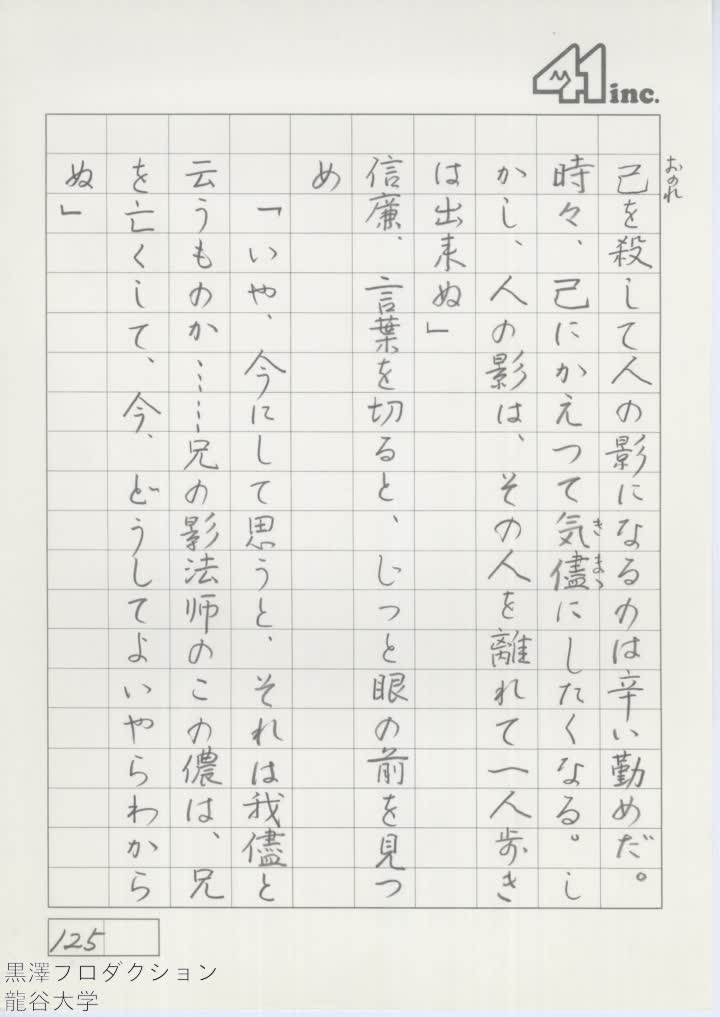 41 inc.
おのれ
己を殺して人の影になるのは辛い勤めだ。
時々、己にかえつて気儘にしたくなる。し
きまゝ
かし、人の影は、その人を離れて一人歩き
は出来ぬ」
信廉、言葉を切ると、じっと眼の前を見つ
め
「いや、今にして思うと、それは我儘と
云うものか……兄の影法師のこの儂は、兄
を亡くして、今、どうしてよいやらわから
ぬ」
125
黒澤プロダクション
龍谷大学